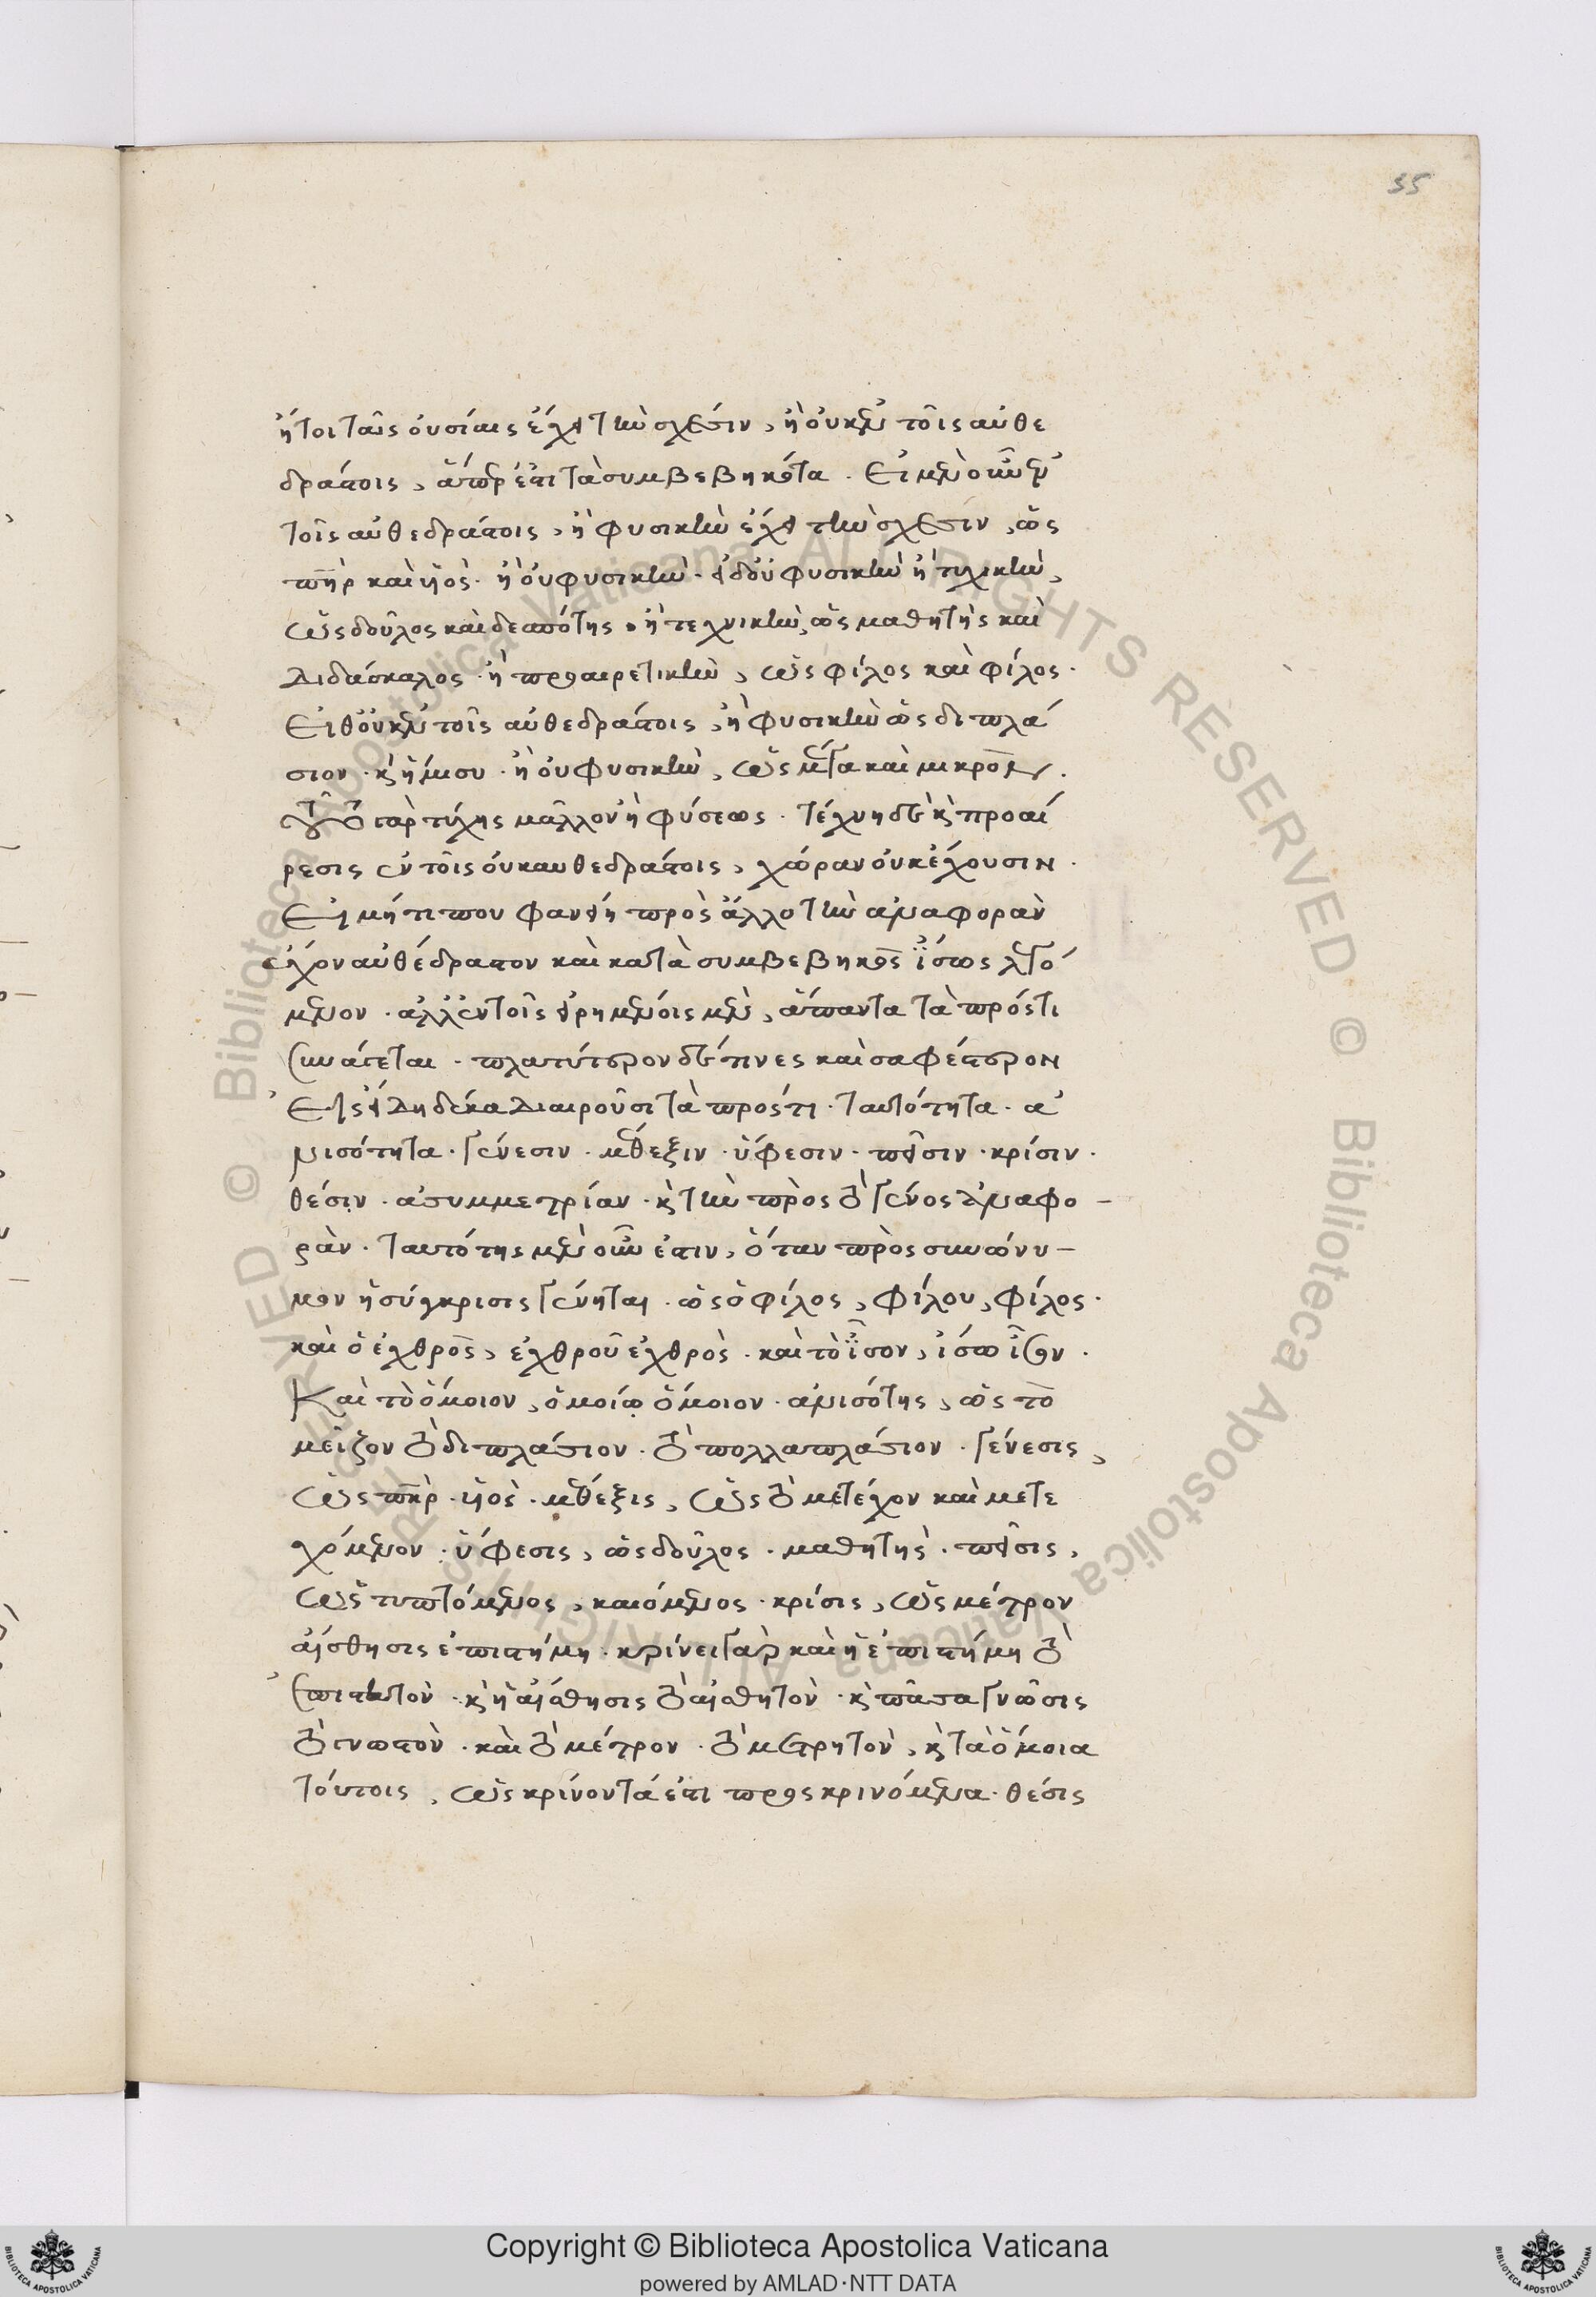 35
ἤτοι ταῖς οὐσίαις ἔχει τὴν σχέσιν, ἢ οὐκ ἐν τοῖς αὐθε
δράστοις, ἅπερ ἐστὶ τὰ συμβεβηκότα. Εἰ μὲν οὖν ἐν
τοῖς αὐθεδράστοις, ἢ φυσικὴν ἔχει τὴν σχέσιν, ὡς
πηρ καὶ υἱός. ἢ οὐ φυσικὴν. εἰ δ' οὐ φυσικὴν ἢ τυχικὴν,
ὡς δοῦλος καὶ δεσπότης. ἢ τεχνικὴν, ὡς μαθητὴς καὶ
διδάσκαλος. ἢ προαιρετικὴν, ὡς φίλος καὶ φίλος.
Εἰ δ' οὐκ ἐν τοῖς αὐθεδράστοις, ἢ φυσικὴν ὡς διπλά
σιον. κ ἥμισυ. ἢ οὐ φυσικὴν, ὡς μέγα καὶ μικρὸν.
τοῦτο γὰρ τύχης μᾶλλον ἢ φύσεως. τέχνη δὲ κ προαί
ρεσις ἐν τοῖς οὐκ αυθεδράστοις, χώραν οὐκ ἔχουσιν.
Εἰ μή τι που φανείη πρὸς ἄλλο τὴν αναφορὰν
ἔχον αὐθέδραστον καὶ κατὰ συμβεβηκὸς ἴσως λεγό
μενον. ἀλλ' ἐν τοῖς εἰρημένοις μὲν, ἅπαντα τὰ πρός τι
συνάγεται. πλατύτερον δέ τινες καὶ σαφέστερον
Εἰς εἴδη δέκα διαιροῦσι τὰ πρός τι. ταυτότητα. α
νισότητα. γένεσιν. μέθεξιν. ὕφεσιν. πεῖσιν. κρίσιν.
θέσιν. ασυμμετρίαν. κ τὴν πρὸς τὸ γένος ἀναφο-
ρὰν. ταυτότης μὲν οὖν ἐστιν, ὅταν πρὸς συνώνυ-
μον ἡ σύγκρισις γένηται. ὡς ὁ φίλος, φίλου, φίλος.
καὶ ὁ ἐχθρὸς, ἐχθροῦ ἐχθρὸς. καὶ τὸ ἴσον, ἴσω ἴσον.
Καὶ τὸ ὅμοιον, ὁμοίῳ ὅμοιον. ανισότης, ὡς τὸ
μεῖζον τὸ διπλάσιον. τὸ πολλαπλάσιον. γένεσις,
ὡς πηρ. υἱὸς. μέθεξις, ὡς τὸ μετέχον καὶ μετε
χόμενον. ὕφεσις, ὡς δοῦλος. μαθητὴς. πεῖσις,
ὡς τυπτόμενος, καιόμενος. κρίσις, ὡς μέτρον
αἴσθησις ἐπιστήμη. κρίνει γὰρ καὶ ἡ ἐπιστήμη τὸ
ἐπιστητὸν. κ ἡ αἴσθησις τὸ αἰσθητὸν. κ πᾶσα γνῶσις
τὸ γνωστὸν. καὶ τὸ μέτρον. τὸ μετρητὸν, κ τὰ ὅμοια
τούτοις, ὡς κρίνοντά ἐστι πρὸς κρινόμενα. θέσις
Copyright © Biblioteca Apostolica Vaticana
powered by AMLAD·NTT DATA